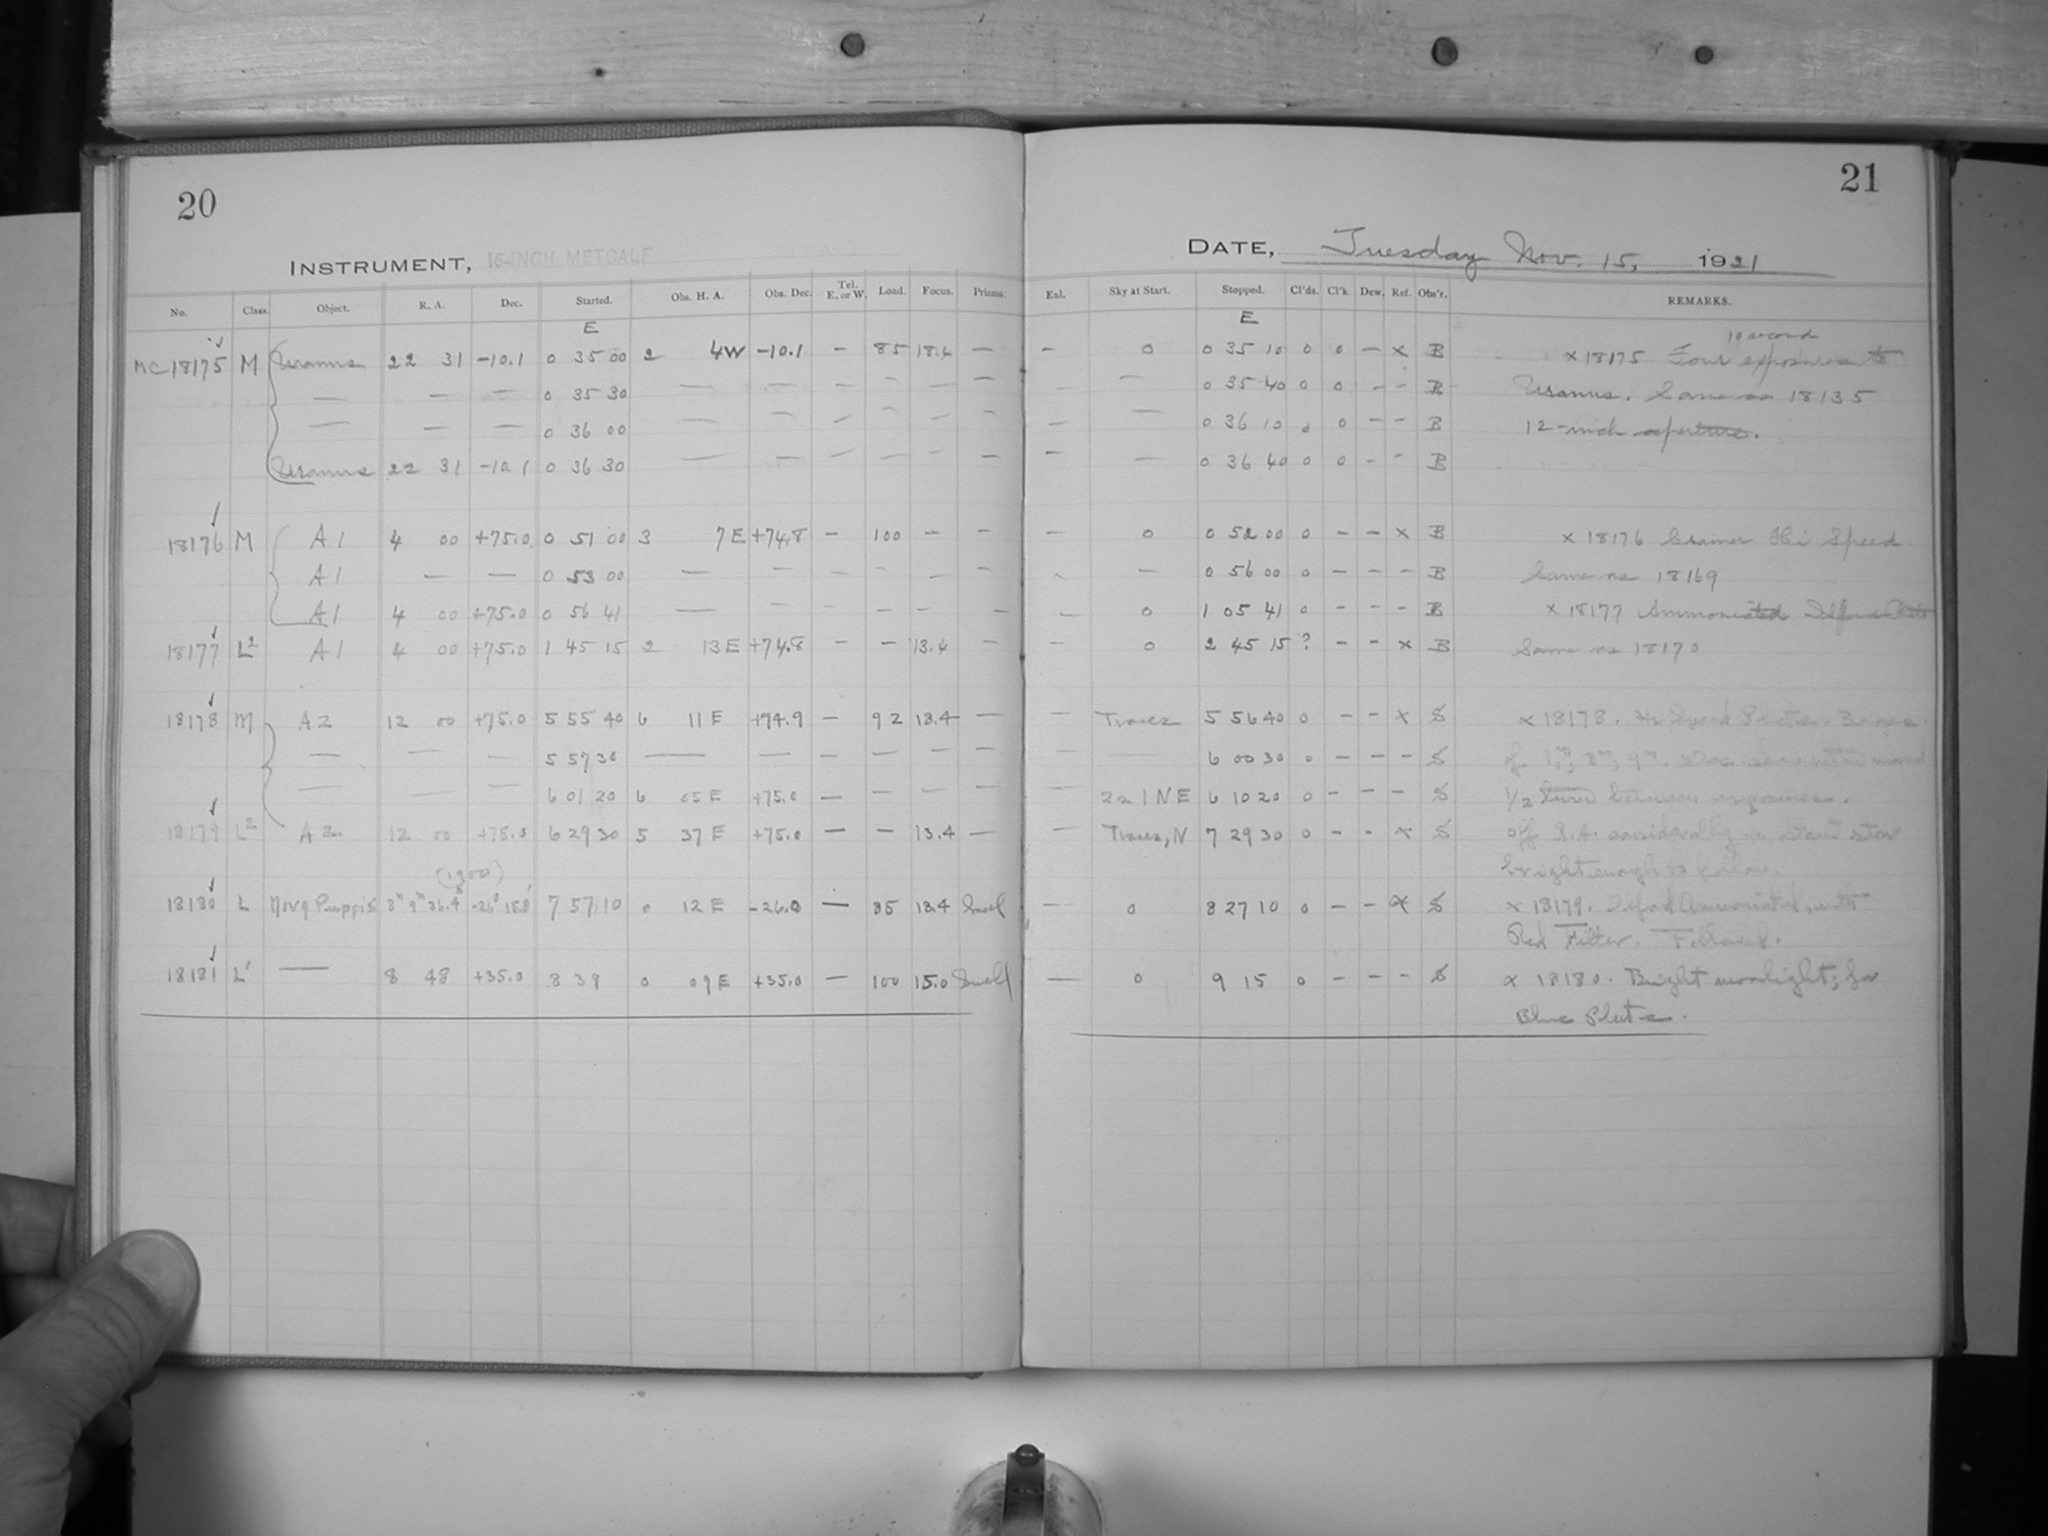 20
INSTRUMENT, 16-INCH METCALF
No. Class. Object. R. A. Dec. Started. Obs. H. A. Obs. Dec. Tel. E. or W. Load. Focus. Prisms.
E
MC 18175 M Uranus 22 31 -10.1 0 35 00 2 4W -10.1 - 85 13.4 -
— — — 0 35 30 — — — — — —
— — — 0 36 00 — — — — — —
Uranus 22 31 -10.1 0 36 30 — — — — — —
18176 M A1 4 00 +75.0 0 51 00 3 7E +74.8 - 100 - -
A1 — — 0 53 00 — — — — — —
A1 4 00 +75.0 0 56 41 — — — — — —
18177 L2 A1 4 00 +75.0 1 45 15 2 13E +74.8 - - 13.4 -
18178 M A2 12 00 +75.0 5 55 40 6 11E +74.9 - 92 13.4 -
— — — 5 57 30 — — — — — —
— — — 6 01 20 6 05E +75.0 — — — —
18179 L2 A2 12 00 +75.0 6 29 30 5 37E +75.0 — - 13.4 —
(1900)
18180 L Nova Puppis 8h 9m 36.4s -26° 15.8' 7 57 10 0 12E -26.0 — 85 13.4 Small
18181 L' — 8 48 +35.0 8 39 0 09E +35.0 — 100 15.0 Small
21
DATE, Tuesday Nov. 15, 1921
Enl. Sky at Start. Stopped. Cl'ds. Cl'k. Dew. Ref. Obs'r. REMARKS.
E
10 second
- 0 0 35 10 0 0 - x B x 18175 Four exposures to
- — 0 35 40 0 0 - - B Uranus. Same as 18135
- — 0 36 10 0 0 - - B 12-inch aperture.
- — 0 36 40 0 0 - - B
- 0 0 52 00 0 - - x B x 18176 Cramer Hi Speed
- — 0 56 00 0 - - - B Same as 18169
- 0 1 05 41 0 - - - B x 18177 Ammoniated Ilford Plate
- 0 2 45 15 ? - - x B Same as 18170
- Traces 5 56 40 0 - - x S x 18178. Hi Speed Plate.
— — 6 00 30 0 - - - S of 1m, 3m, 9m.
— 221NE 6 10 20 0 - - - S 1/2 turn between exposures.
— Traces, N 7 29 30 0 - - x S off R.A. considerably star
bright enough to follow.
— 0 8 27 10 0 - - x S x 18179. Ilford Ammoniated, with
Red Filter. Followed.
— 0 9 15 0 - - - S x 18180. Bright moonlight; for
Blue Plate.